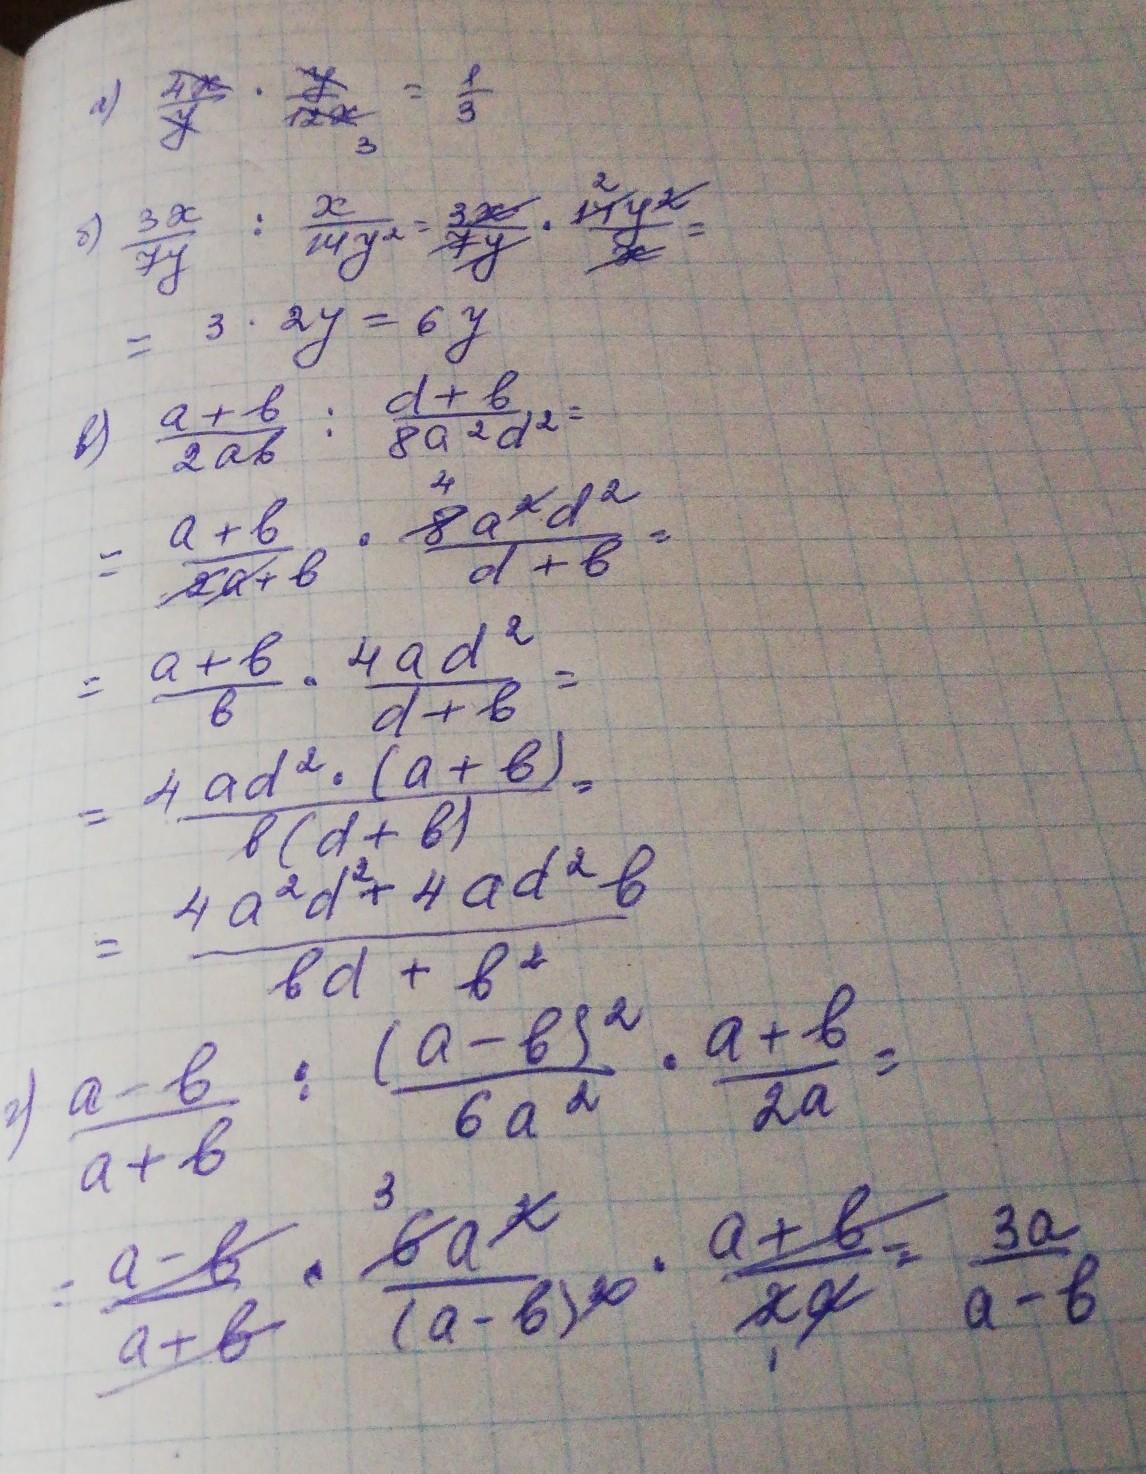 а) 4x/y · y/12x 3 = 1/3
б) 3x/7y : x/14y² = 3x/7y · 2 14y²/x =
= 3 · 2y = 6y
в) a+b/2ab : d+b/8a²d² =
= a+b/2a+b · 4 8a²d²/d+b =
= a+b/b · 4ad²/d+b =
= 4ad² · (a+b)/b(d+b) =
= 4a²d² + 4ad²b/bd + b²
г) a-b/a+b : (a-b)²/6a² · a+b/2a =
= a-b/a+b · 3 6a²/(a-b)² · a+b/2a 1 = 3a/a-b